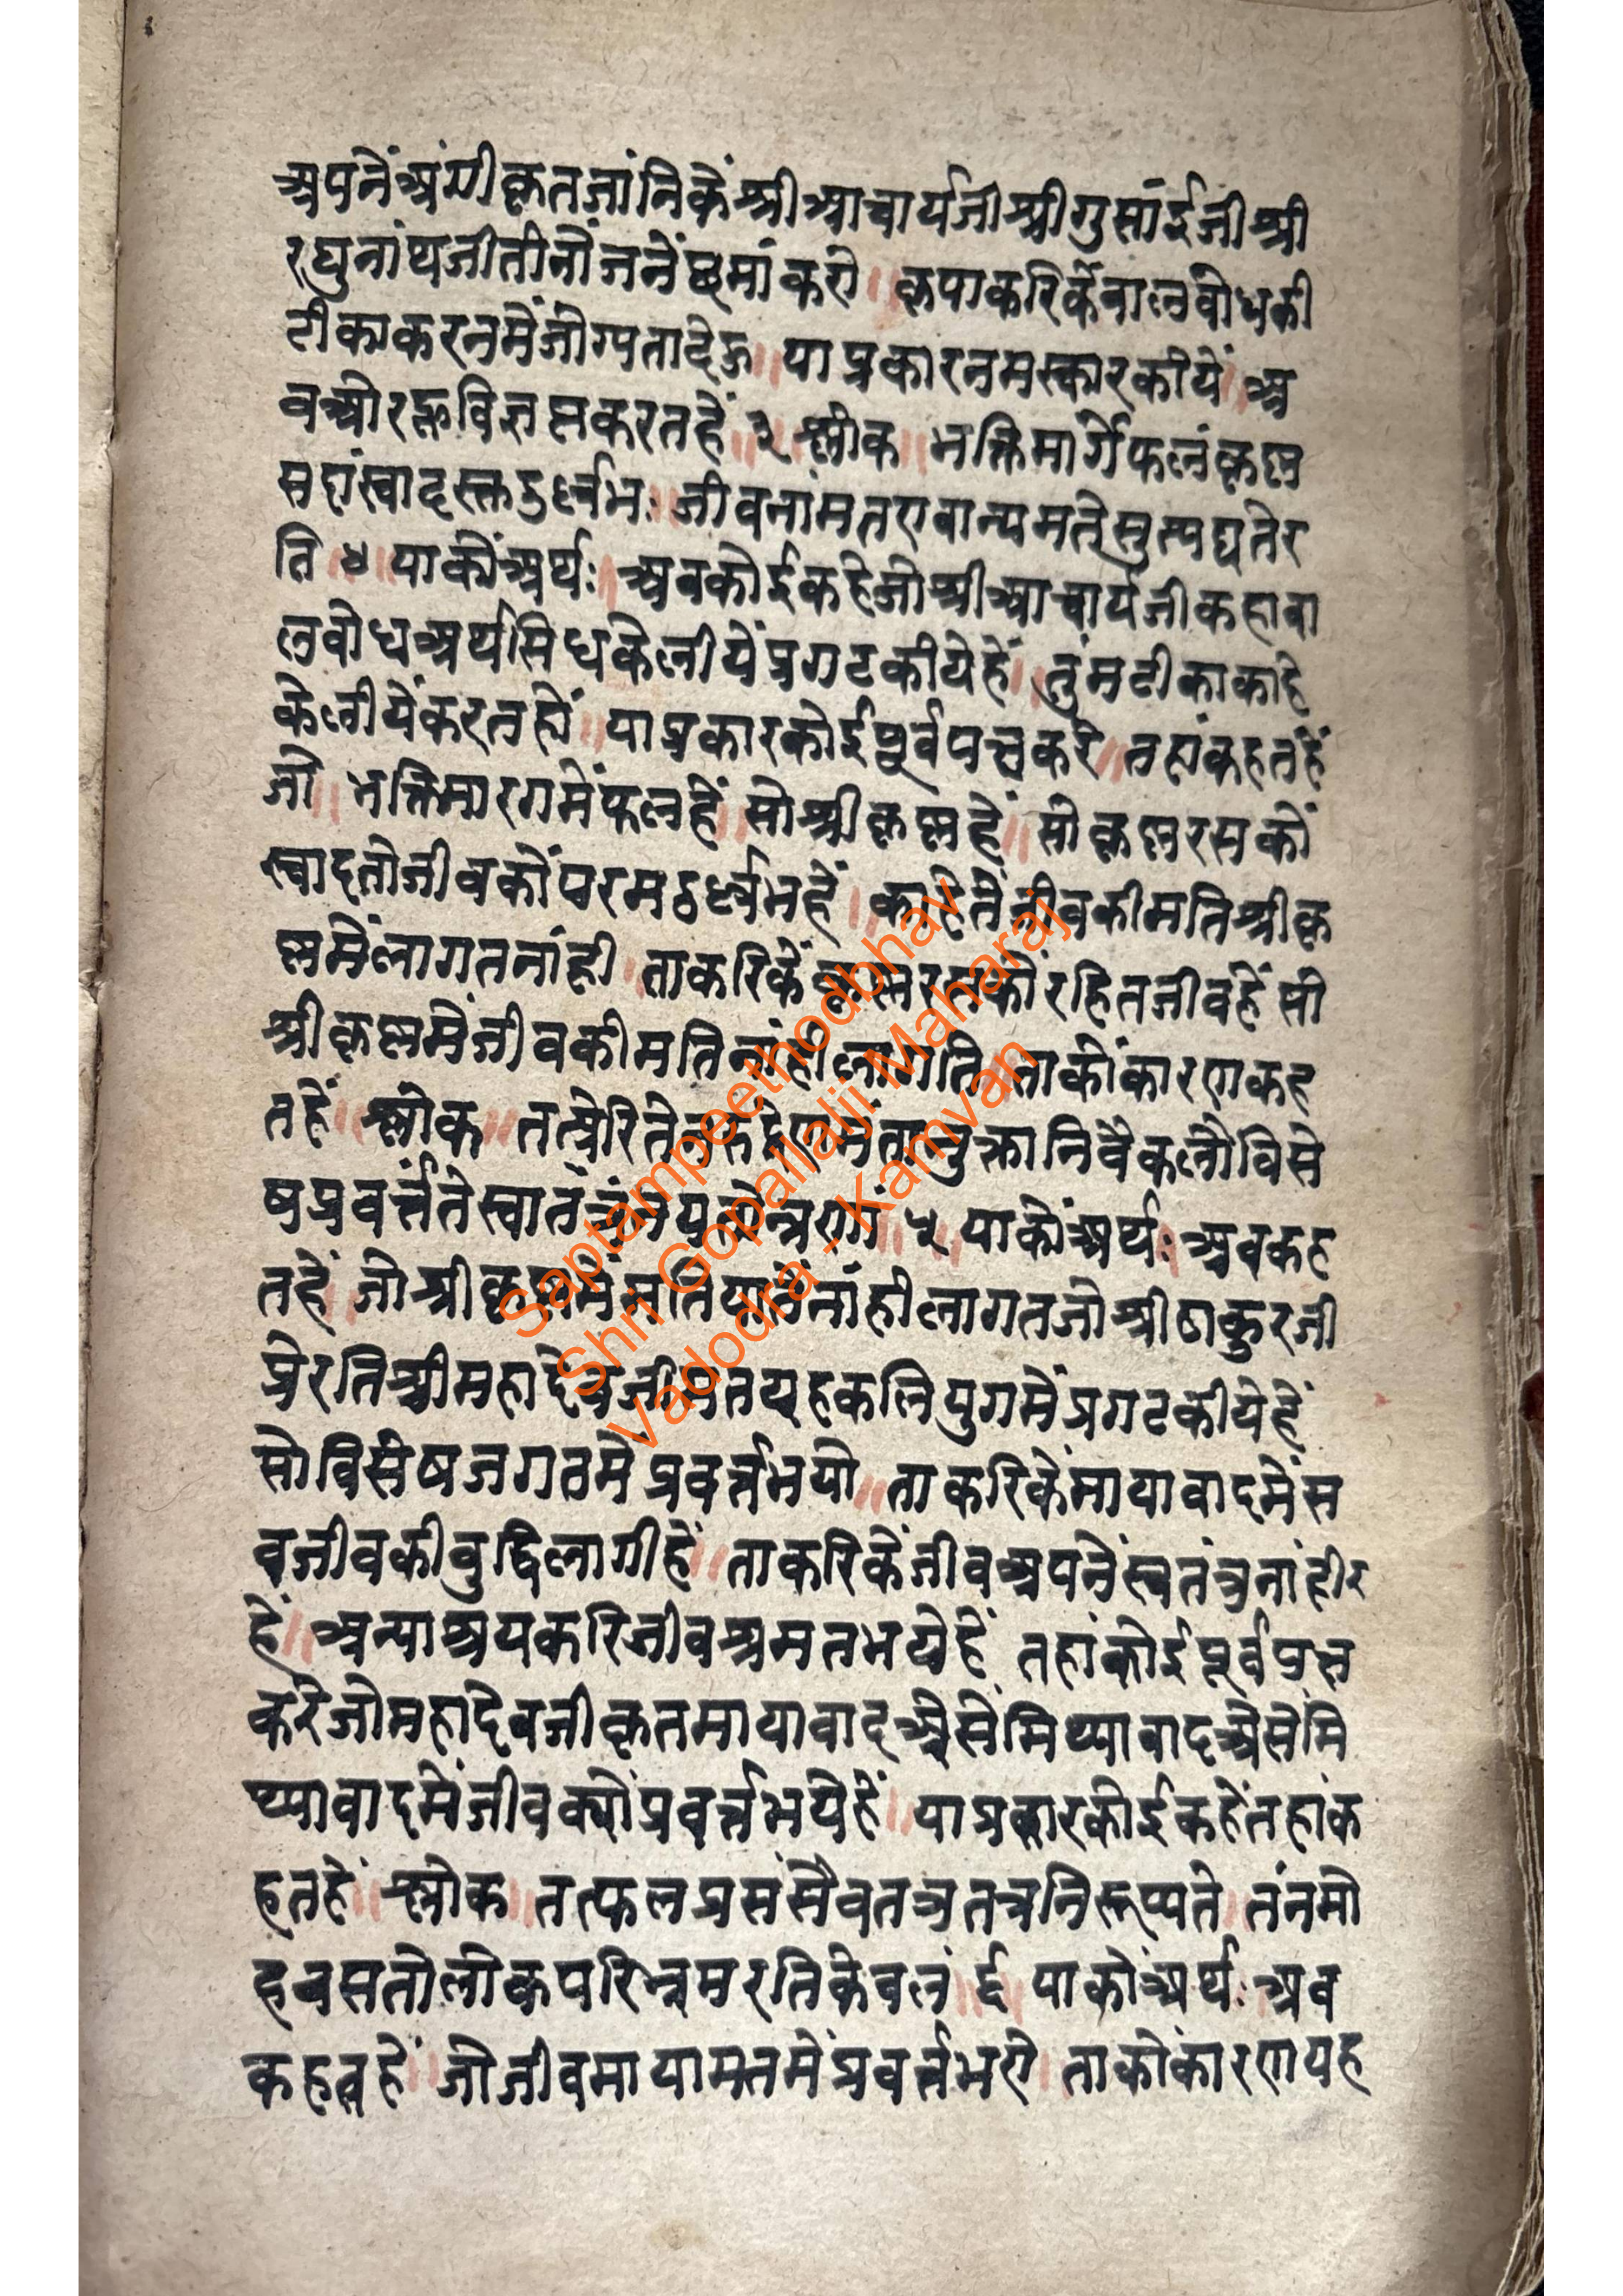 अपनें अंगीकृत जांनिकें श्री आचार्यजी श्री गुसांईजी श्री
रघुनांथजी तीनों जनें छमां करो ॥ कृपा करिकें बालबोधकी
टीका करनमें जोग्यता देऊ ॥ या प्रकार नमस्कार कीयें ॥ अ
ब ओर कृ विज्ञप्त करत हें ॥ ३ श्लोक ॥ भक्तिमार्गे फलं कृष्ण
स दुर्ल्लभः ॥ जीवनां
ति ॥ ४ ॥ याकों अर्थः ॥ अब कोई कहे जो श्री आचार्यजी कहा बा
लबोध अर्थ सिध केलीयें प्रगट कीये हें ॥ तुंम टीका काहे
केलीयें करत हों ॥ या प्रकार कोई पूर्वपच्छ करे ॥ तहां कहत हें
जो ॥ भक्तिमारगमें फल हें ॥ सो श्रीकृष्ण हें ॥ सो कृष्ण रसकों
स्वाद तो जीवकों परम दुर्ल्लभ हें ॥ काहेतें जीवकी मति श्रीकृ
ष्णमें लागत नांही ॥ ताकरिकें कृष्ण रसकों रहित जीव हें सो
श्रीकृष्णमें जीवकी मति नांही लागति ॥ ताकों कारण कह
त हें ॥ श्लोक ॥ तत्प्रेरितेन कलौ विसे
ष प्रवर्त्तते ५ ॥ याकों अर्थः ॥ अब कह
त हें ॥ जो श्रीकृष्णमें मति यातें नांही लागत जो श्रीठाकुरजी
प्रेरति श्रीमहादेवजी मत यह कलियुगमें प्रगट कीये हें
सो विसेष जगतमें प्रवर्त्त भयो ॥ ताकरिकें मायावादमें स
ब जीवकी बुद्धि लागी हें ॥ ताकरिकें जीव अपनें स्वतंत्र नांही र
हें ॥ अन्याश्रय करि जीव भ्रमत भये हें ॥ तहां कोई पूर्वप्रस्न
करे जो महादेवजी कृत मायावाद असें मिथ्यावाद असें मि
थ्यावादमें जीव क्यों प्रवर्त्त भये हें ॥ या प्रकार कोई कहें तहां क
हत हें ॥ श्लोक ॥ तत्फल प्रसंसैव तत्र तत्र निरूप्यते ॥ तंनमो
हवसतो लोक परिभ्रमरति केवलं ॥ ६ ॥ याकों अर्थः ॥ अब
कहत हें ॥ जो जीव माया मतमें प्रवर्त्त भए ॥ ताकों कारण यह
Saptampeethodbhav
Shri Gopallalji Maharaj
Vadodra - Kamvan